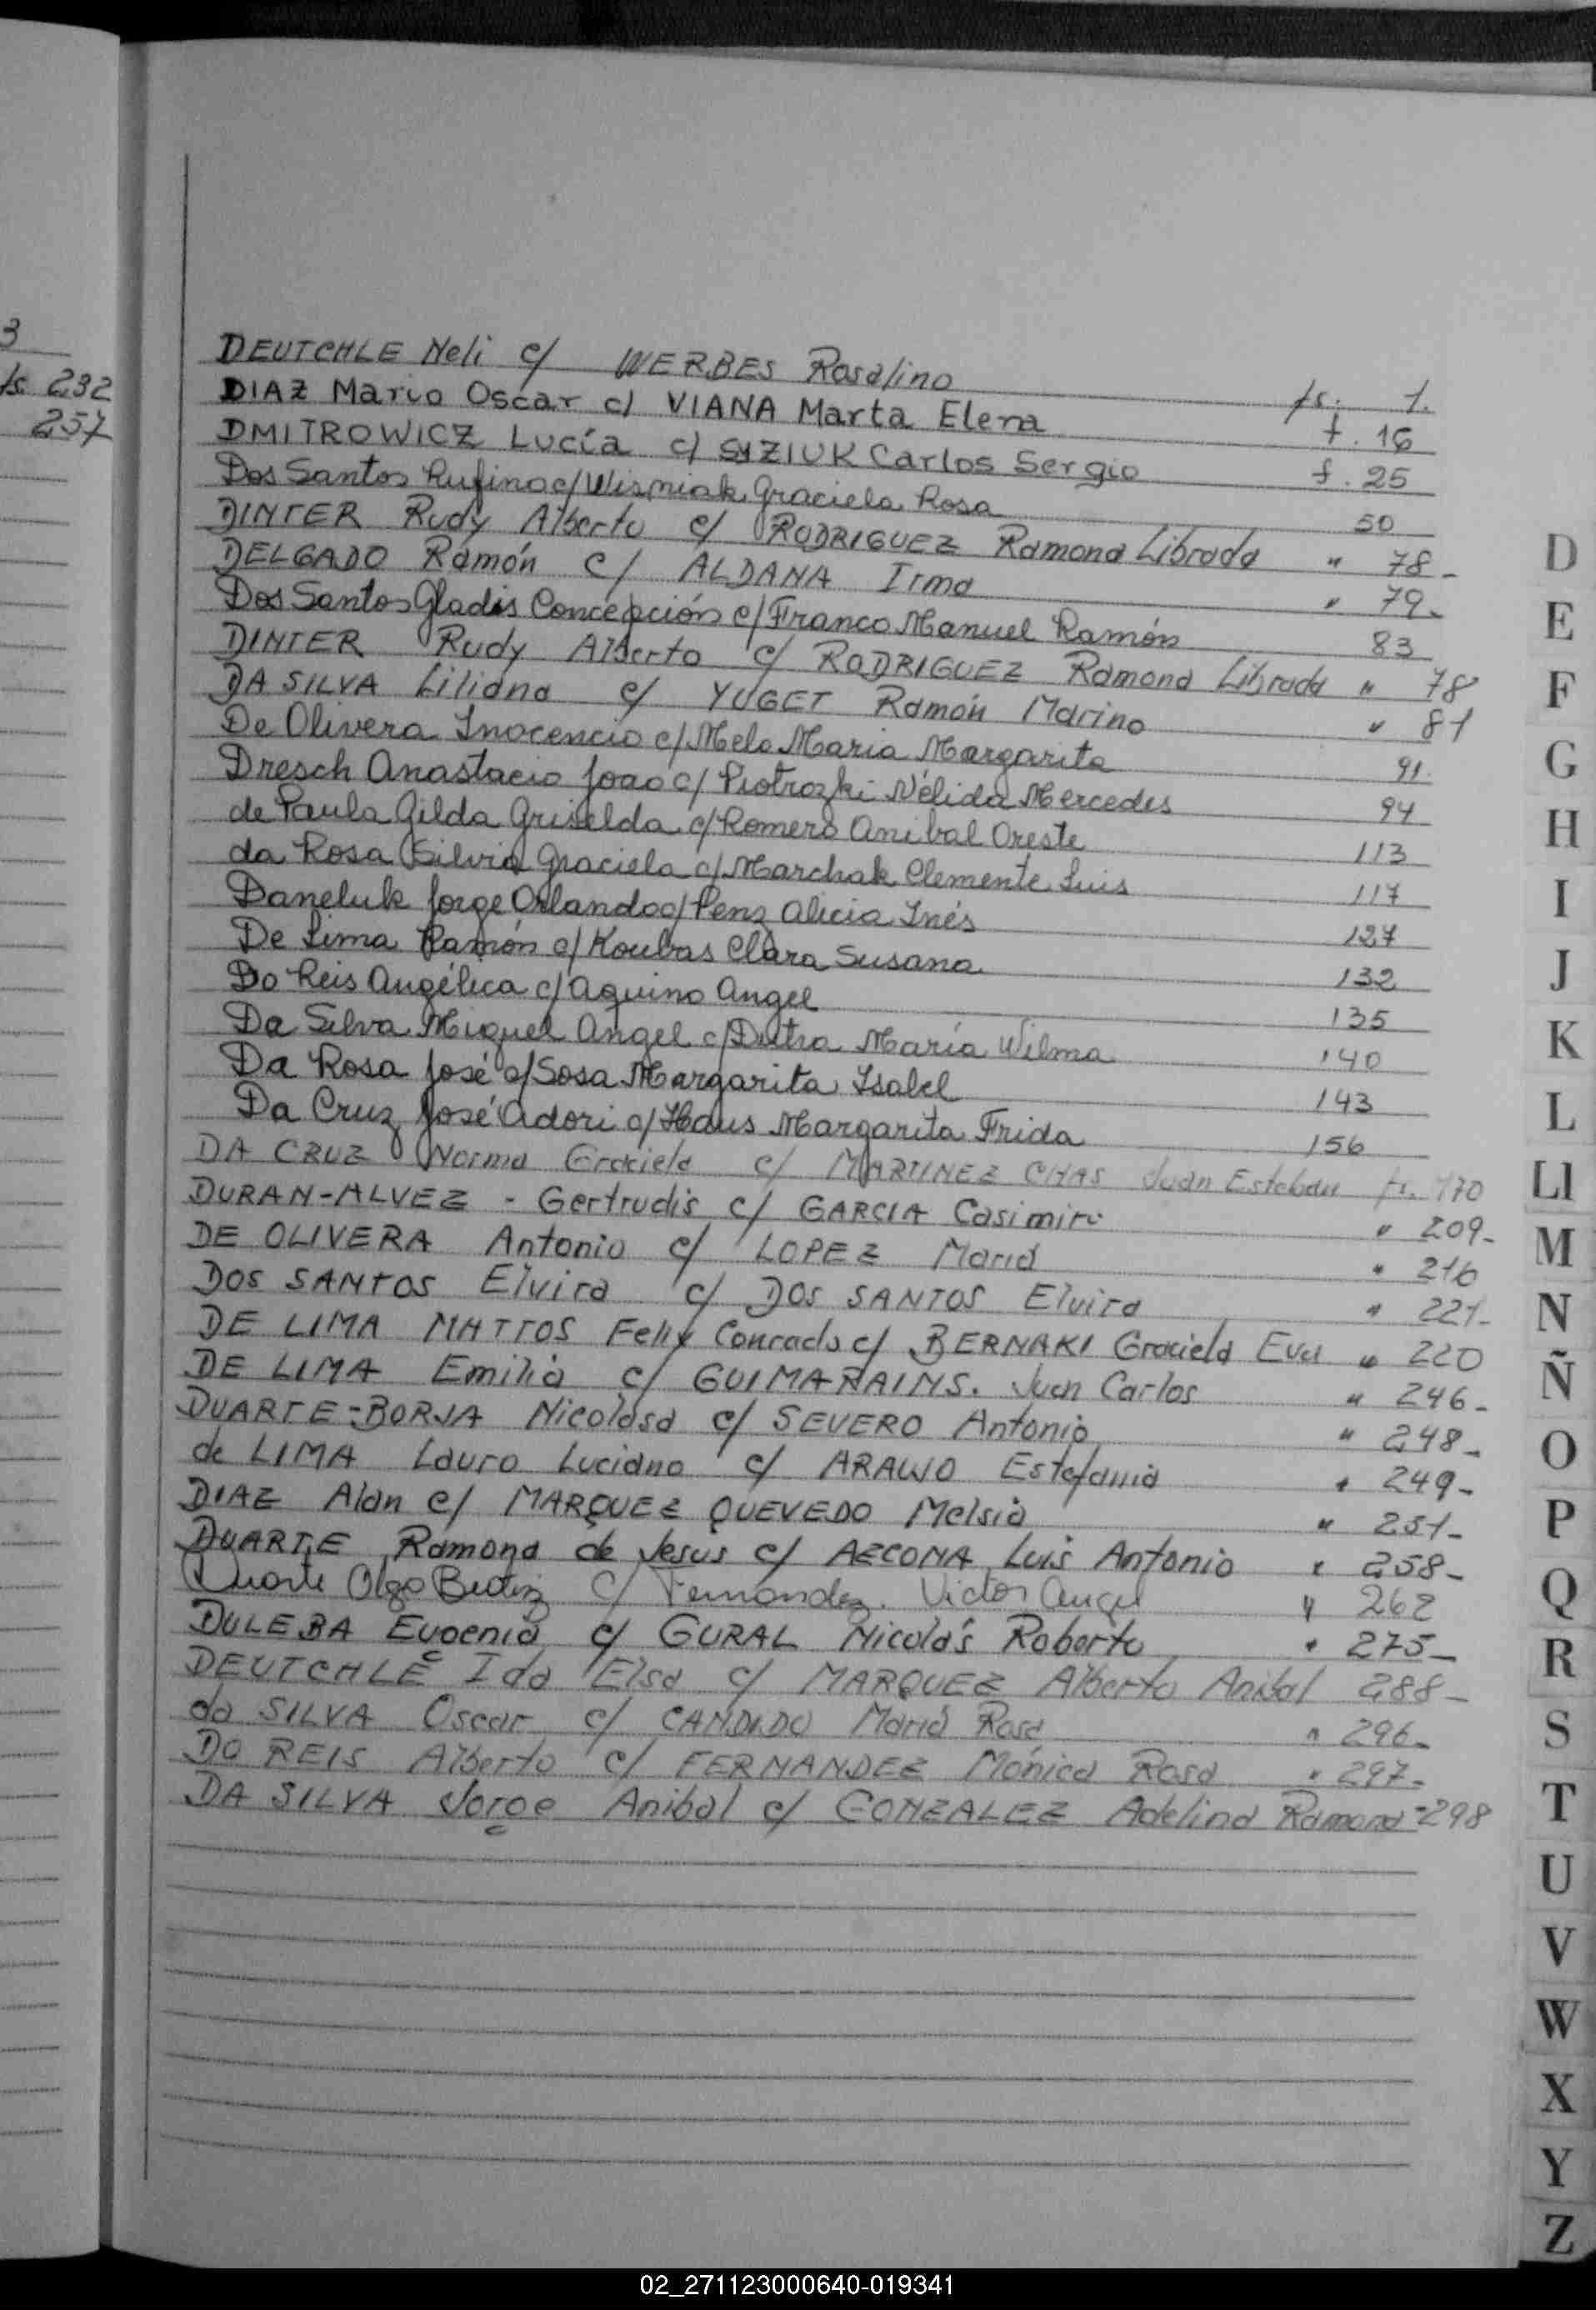 3
fs. 232
257
DEUTCHLE Neli c/ WERBES Rosalino fs. 1.
DIAZ Mario Oscar c/ VIANA Marta Elena f. 16
DMITROWICZ Lucía c/ SYZIUK Carlos Sergio f. 25
Dos Santos Rufino c/ Wisniak Graciela Rosa 50
DINTER Rudy Alberto c/ RODRIGUEZ Ramona Librada " 78-
DELGADO Ramón c/ ALDANA Irma " 79-
Dos Santos Gladis Concepción c/ Franco Manuel Ramón 83
DINTER Rudy Alberto c/ RODRIGUEZ Ramona Librada " 78
DA SILVA Liliana c/ YUGET Ramón Marino " 81
De Olivera Inocencio c/ Melo Maria Margarita 91.
Dresch Anastacio Joao c/ Piotrozki Nélida Mercedes 94
de Paula Gilda Griselda c/ Romero Anibal Oreste 113
da Rosa Silvia Graciela c/ Marchak Clemente Luis 117
Daneluk Jorge Orlando c/ Penz Alicia Inés 127
De Lima Ramón c/ Koubas Clara Susana 132
Do Reis Angélica c/ Aquino Angel 135
Da Silva Miguel Angel c/ Dutra María Wilma 140
Da Rosa José c/ Sosa Margarita Isabel 143
Da Cruz José Adori c/ Haus Margarita Frida 156
DA CRUZ Norma Graciela c/ MARTINEZ CHAS Juan Esteban fs. 170
DURAN-ALVEZ - Gertrudis c/ GARCIA Casimiro " 209-
DE OLIVERA Antonio c/ LOPEZ María " 216
DOS SANTOS Elvira c/ DOS SANTOS Elvira " 221-
DE LIMA MATTOS Felix Conrado c/ BERNAKI Graciela Eva " 220
DE LIMA Emilia c/ GUIMARAINS. Juan Carlos " 246-
DUARTE-BORJA Nicolasa c/ SEVERO Antonio " 248-
de LIMA Lauro Luciano c/ ARAUJO Estefania " 249-
DIAZ Alan c/ MARQUEZ QUEVEDO Melsia " 251-
DUARTE Ramona de Jesus c/ AZCONA Luis Antonio " 258-
Duarte Olga Beatriz c/ Fernandez. Victor Angel " 262
DULEBA Eugenia c/ GURAL Nicolás Roberto " 275-
DEUTCHLE Ida Elsa c/ MARQUEZ Alberto Anibal 288-
da SILVA Oscar c/ CANDIDO María Rosa " 296-
DO REIS Alberto c/ FERNANDEZ Mónica Rosa " 297-
DA SILVA Jorge Anibal c/ GONZALEZ Adelina Ramona " 298
D
E
F
G
H
I
J
K
L
Ll
M
N
Ñ
O
P
Q
R
S
T
U
V
W
X
Y
Z
02_271123000640-019341